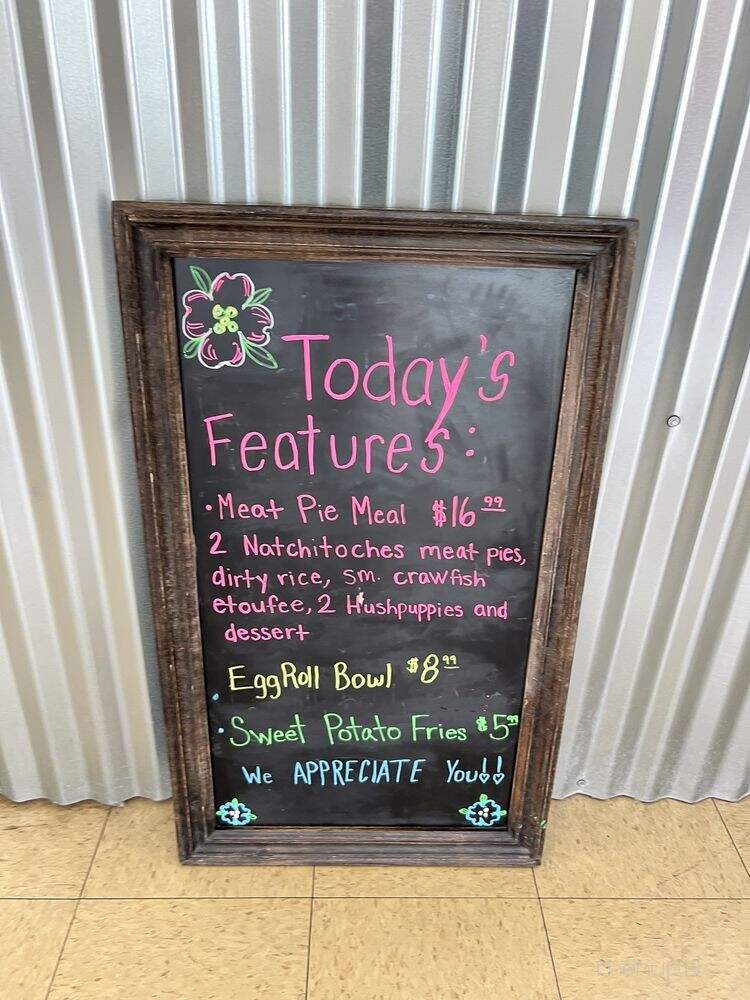 Today's
Features:
• Meat Pie Meal $16.99
2 Natchitoches meat pies,
dirty rice, sm. crawfish
etoufee, 2 Hushpuppies and
dessert
• EggRoll Bowl $8.99
• Sweet Potato Fries $5.99
We APPRECIATE You!!